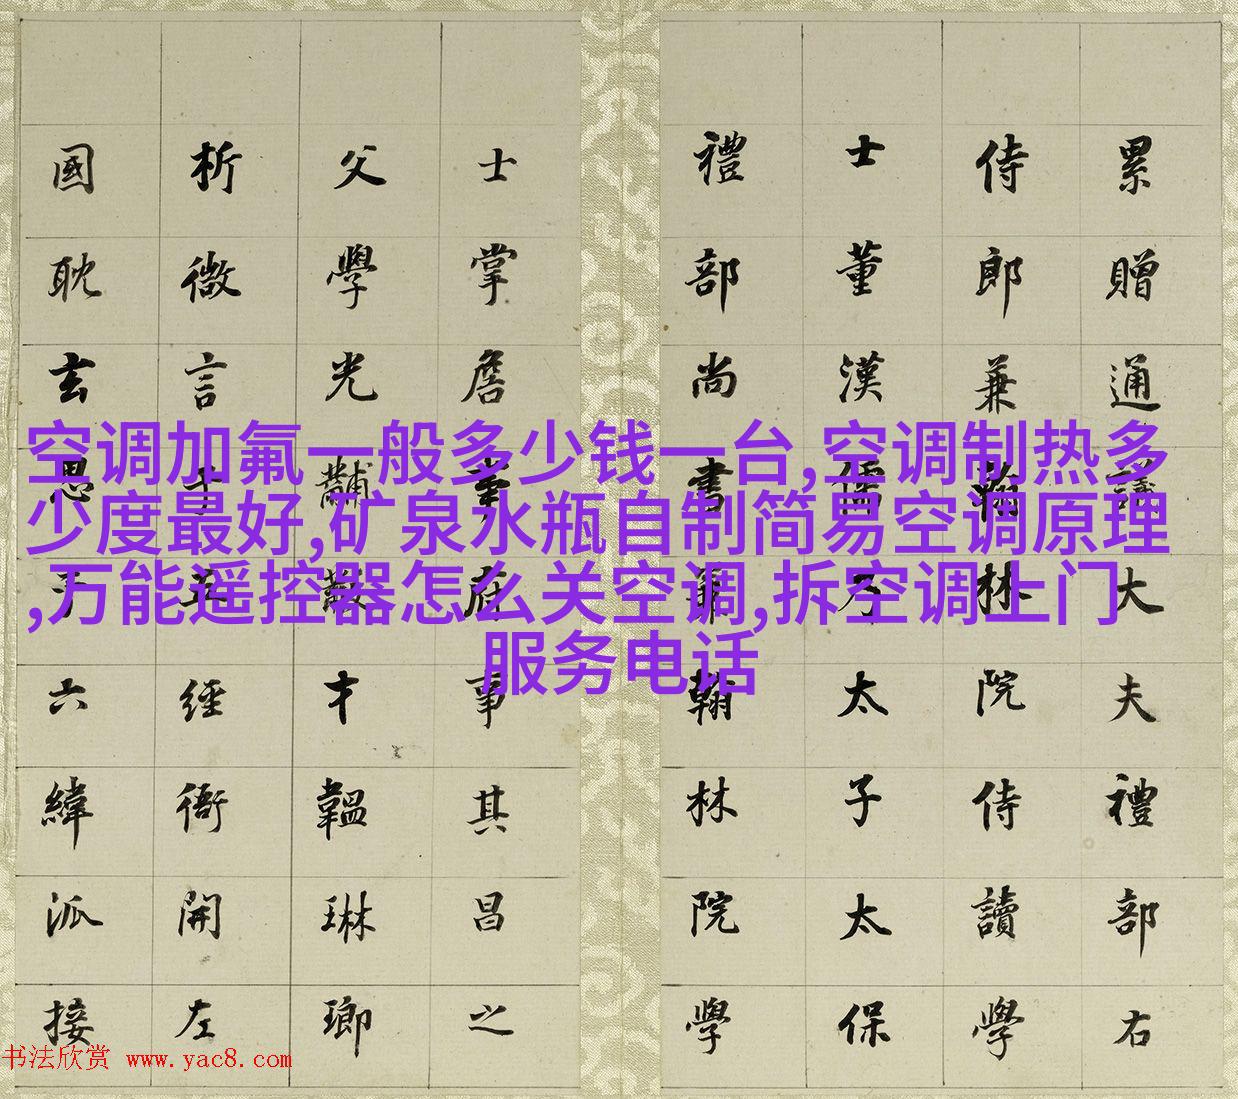 空调加氟一般多少钱一台,空调制热多
少度最好,矿泉水瓶自制简易空调原理
,万能遥控器怎么关空调,拆空调上门
服务电话
累贈通議大夫禮部右
侍郎兼翰林院侍讀學
士董漢儒乃太子太保
禮部尚書兼翰林院學
士掌詹事府事其昌之
父學光黼黻才韞琳瑯
析微言于五經衙開左
國耽玄思于六緯派接
书法欣赏 www.yac8.com